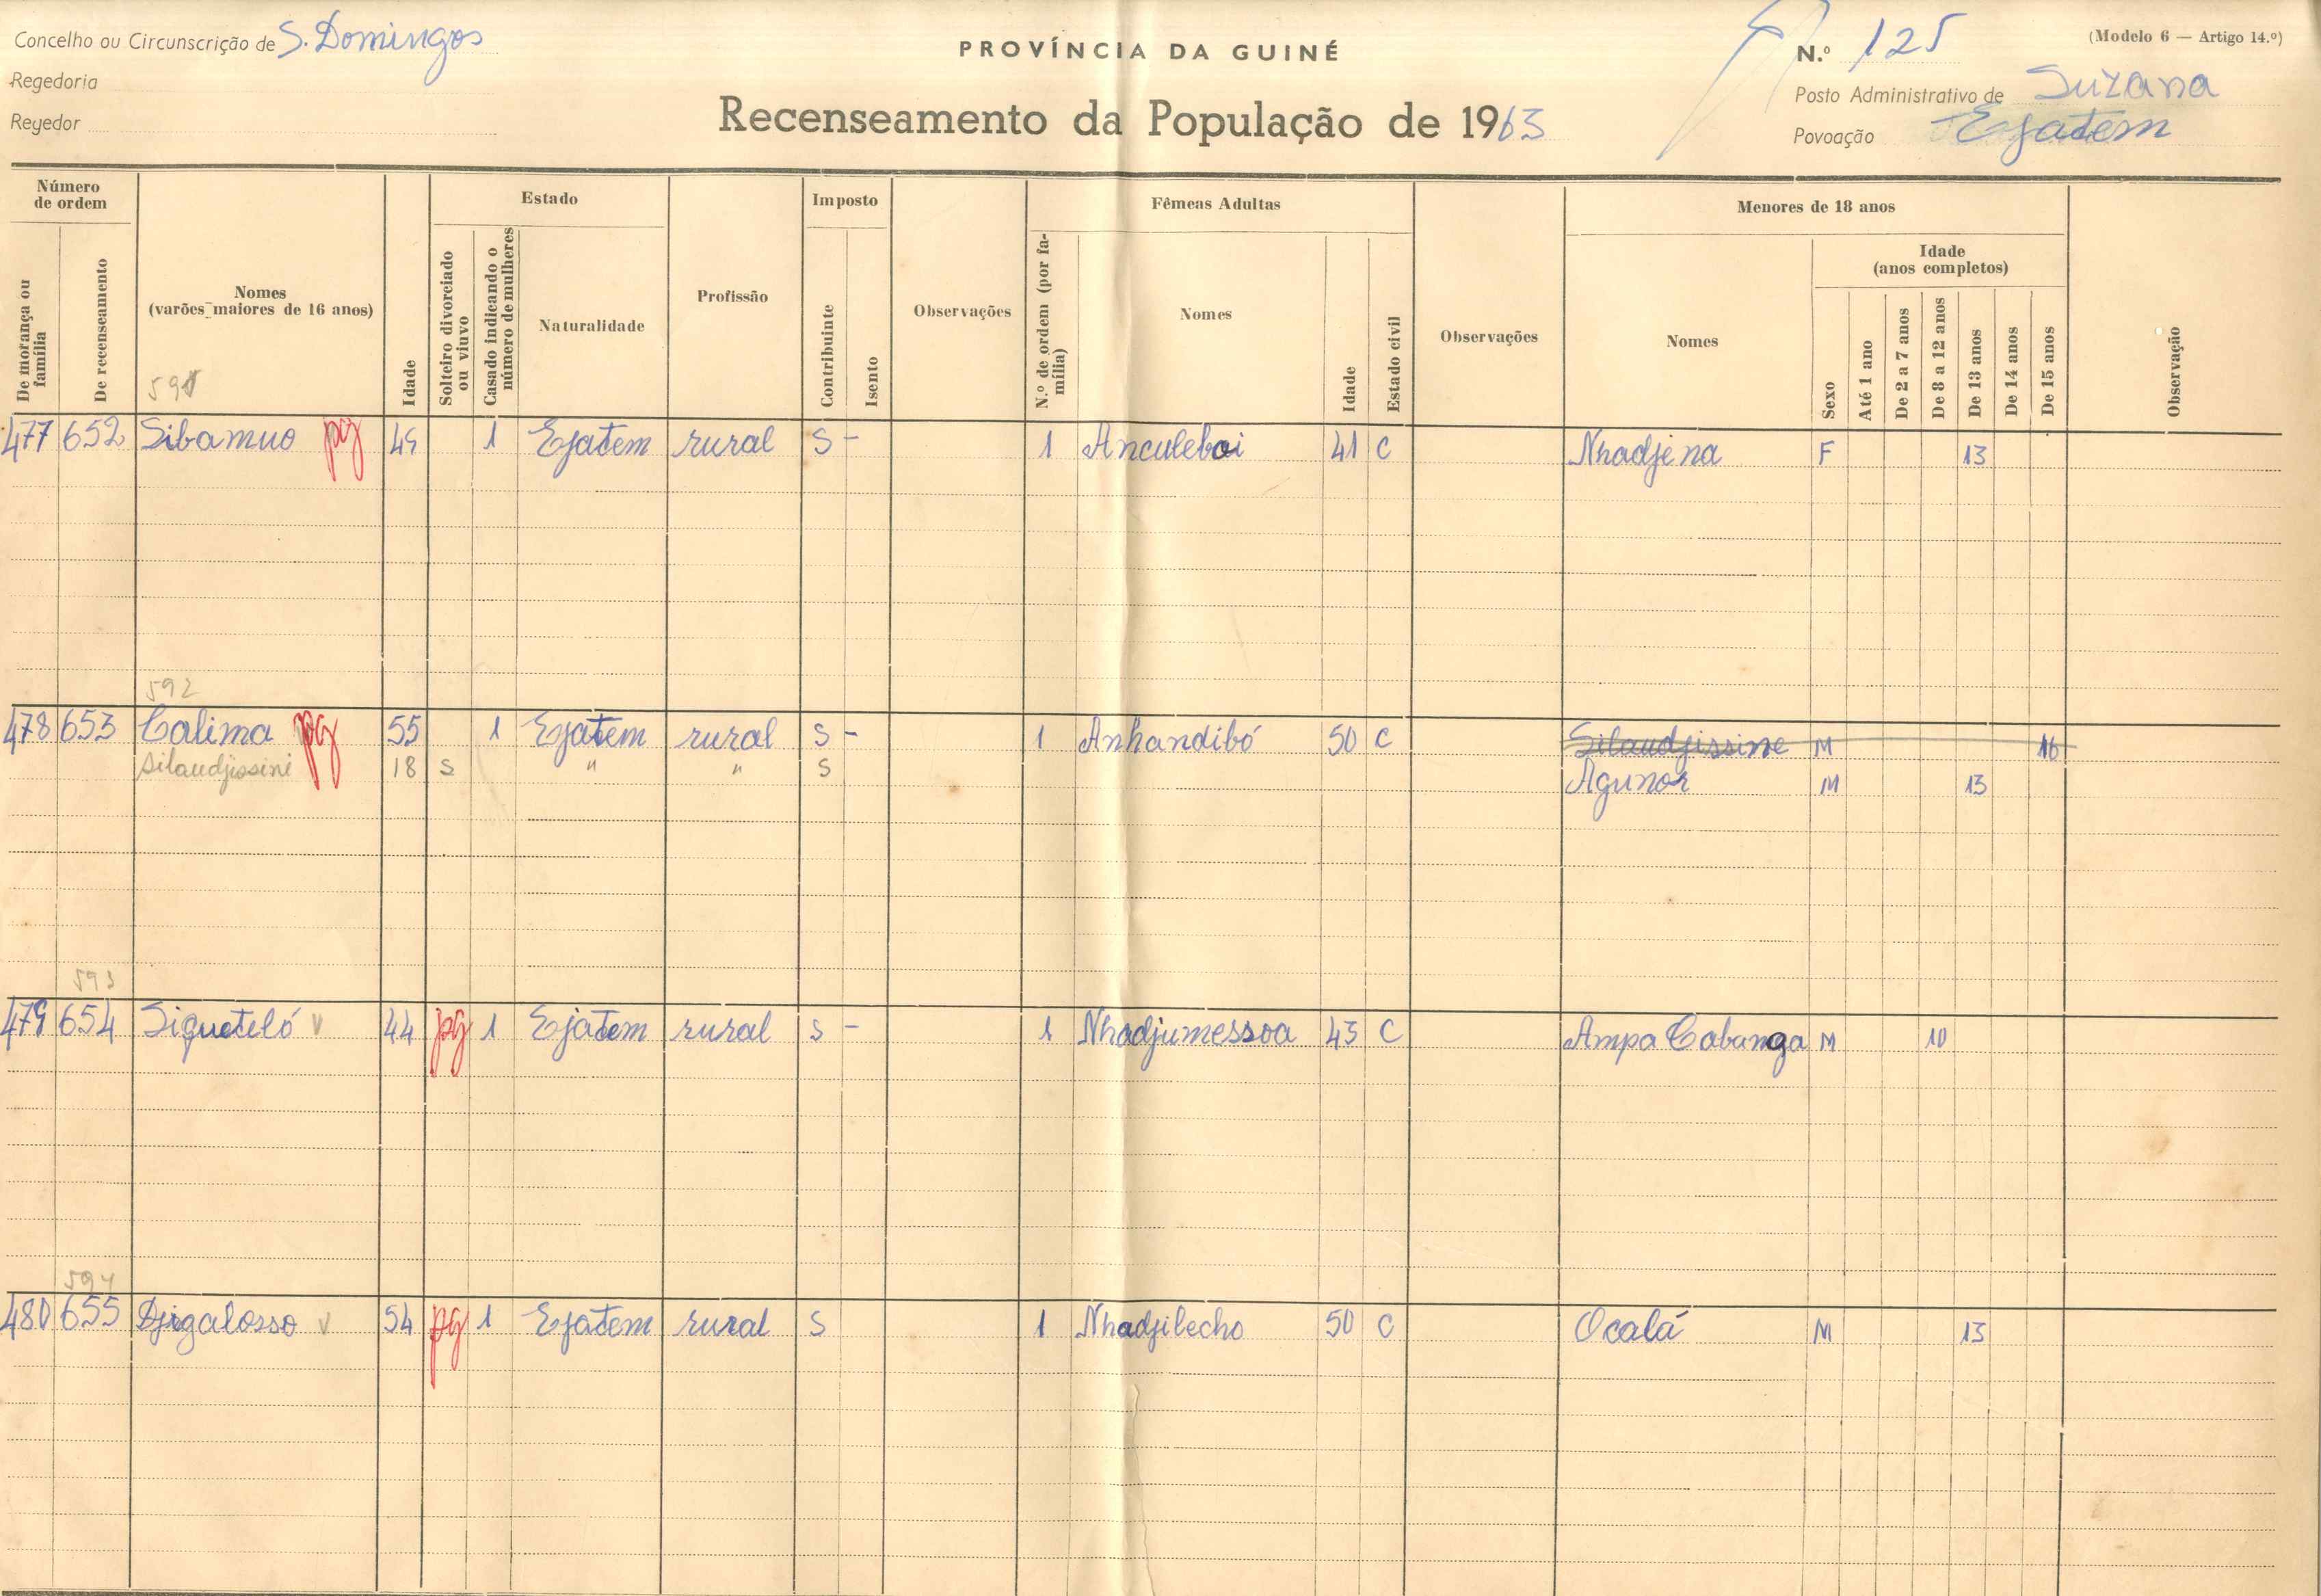 Concelho ou Circunscrição de S. Domingos
Regedoria
Regedor
PROVÍNCIA DA GUINÉ
Recenseamento da População de 1963
(Modelo 6 — Artigo 14.º)
N.º 125
Posto Administrativo de Suzana
Povoação Ejatem
Número de ordem
De morança ou família
De recenseamento
Nomes (varões maiores de 16 anos)
Idade
Estado
Solteiro divorciado ou viuvo
Casado indicando o número de mulheres
Naturalidade
Profissão
Imposto
Contribuinte
Isento
Observações
Fêmeas Adultas
N.º de ordem (por família)
Nomes
Idade
Estado civil
Observações
Menores de 18 anos
Nomes
Sexo
Idade (anos completos)
Até 1 ano
De 2 a 7 anos
De 8 a 12 anos
De 13 anos
De 14 anos
De 15 anos
Observação
591
477 652 Sibamuo pg 49 1 Ejatem rural S - 1 Anculeboi 41 C Nhadjena F 13
592
478 653 Calima pg 55 1 Ejatem rural S - 1 Anhandibó 50 C Silaudjissine M 16
Silaudjissini 18 S " " S Agunor M 13
593
479 654 Siqueteló V 44 pg 1 Ejatem rural S - 1 Nhadjumessoa 43 C Ampa Cabanga M 10
594
480 655 Djigalosso V 54 pg 1 Ejatem rural S 1 Nhadjilecho 50 C Ocalá M 13